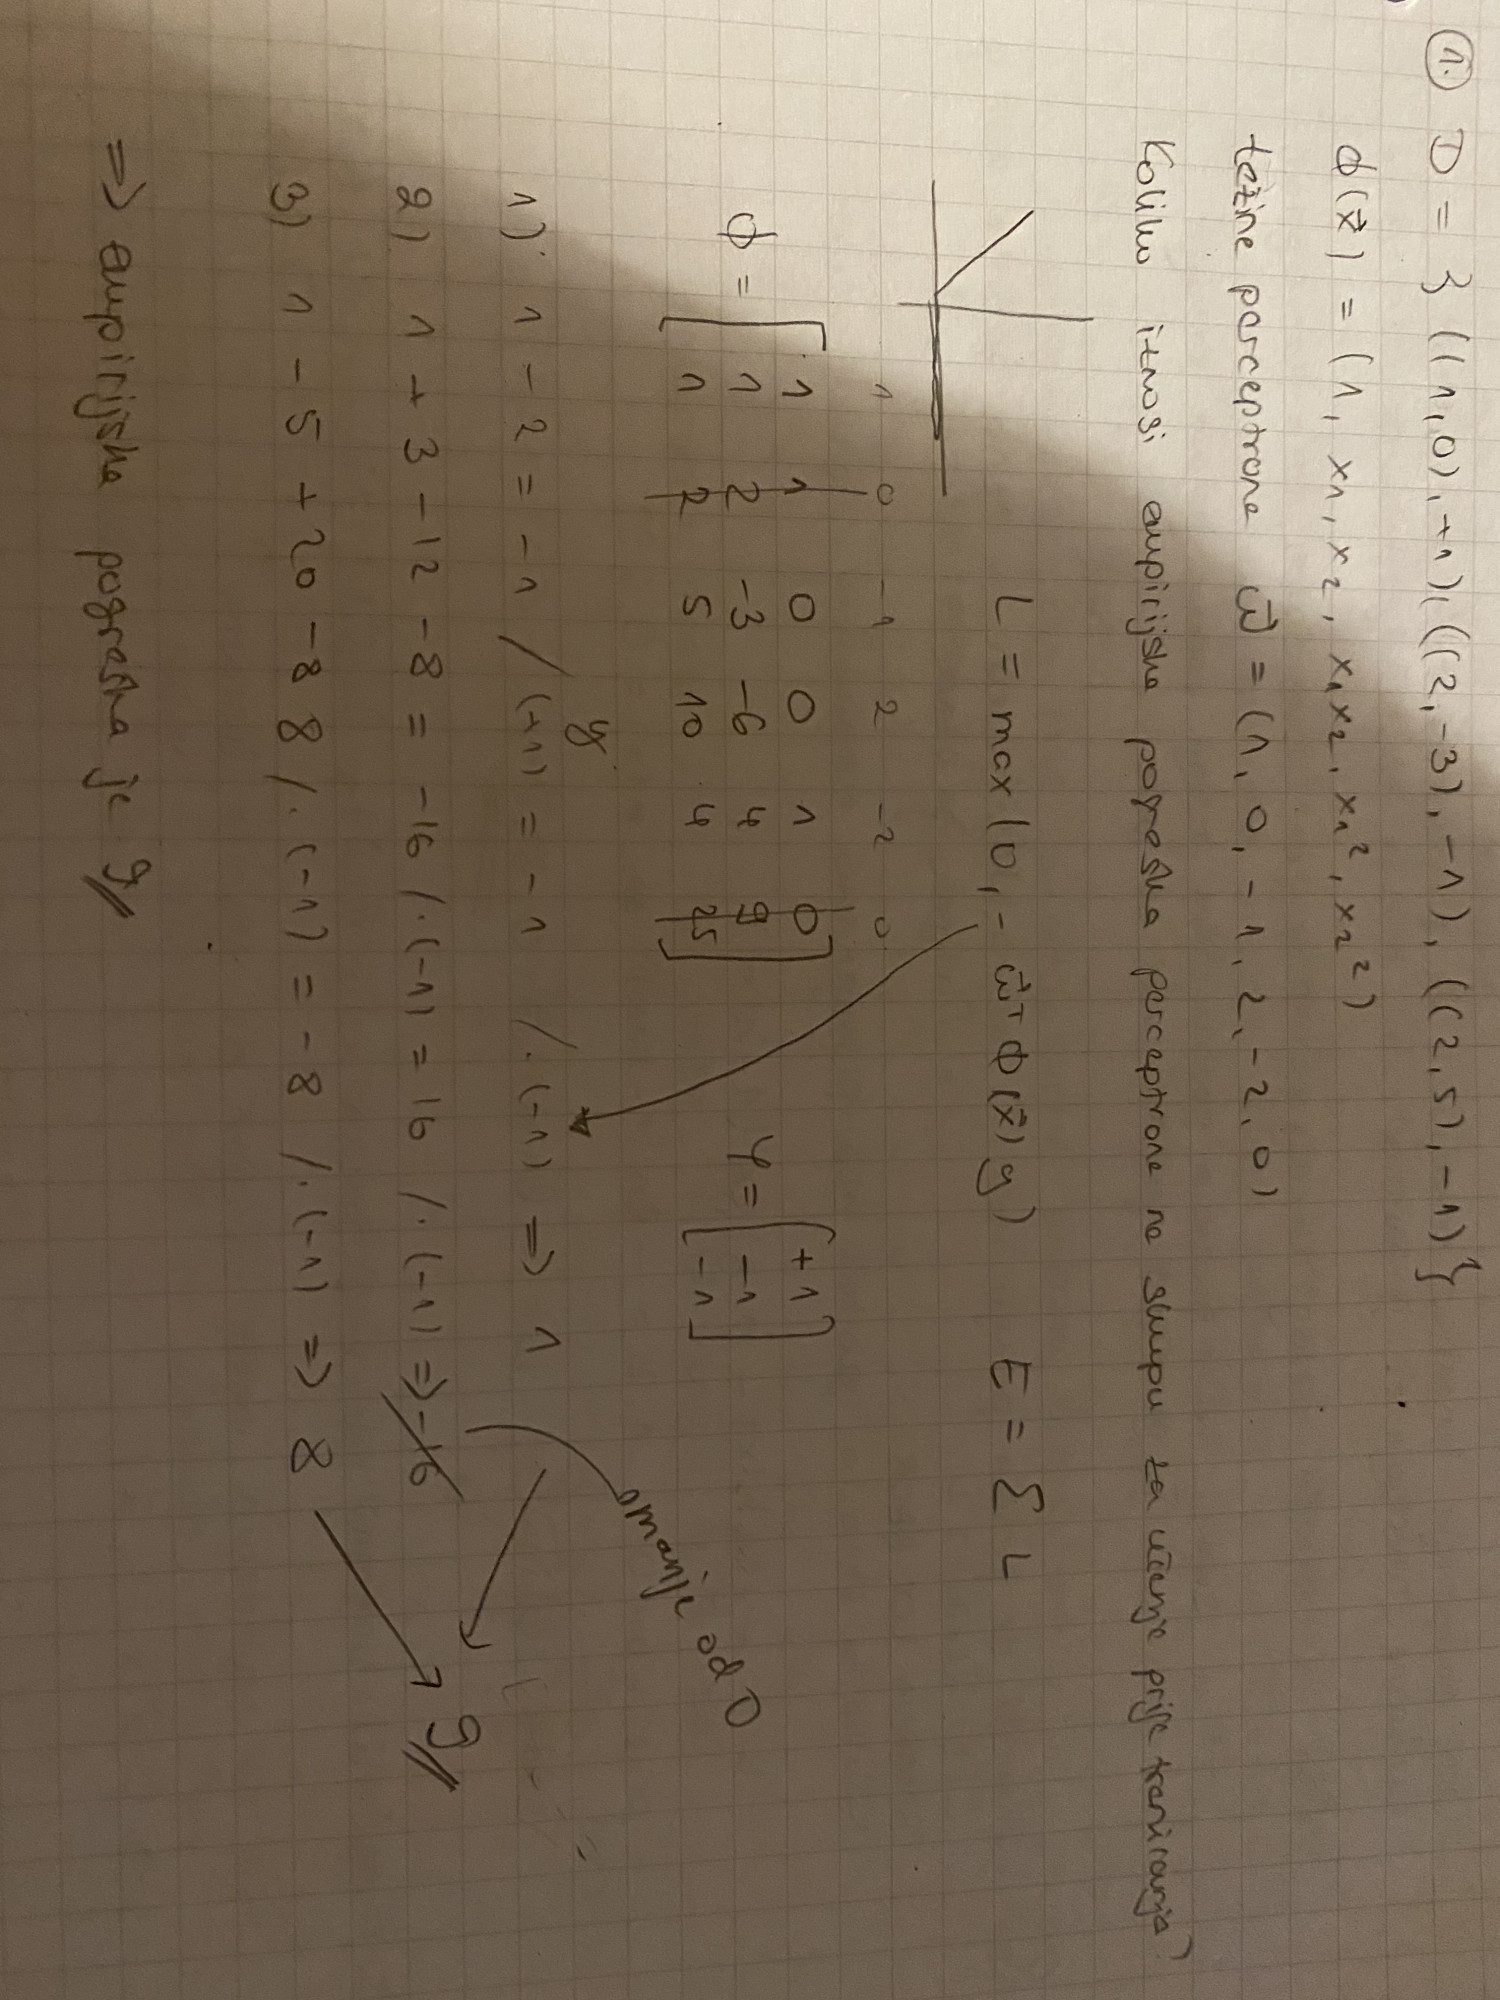 1. D = { ((1,0), +1), ((2,-3), -1), ((2,5), -1) }
φ(x⃗) = (1, x₁, x₂, x₁x₂, x₁², x₂²)
težine perceptrona w⃗ = (1, 0, -1, 2, -2, 0)
Koliko iznosi empirijska pogreška perceptrona na skupu za učenje prije treniranja?
L = max(0, - w⃗ᵀ φ(x⃗) y) E = Σ L
1 0 -1 2 -2 0
1 1 0 0 1 0
φ = 1 2 -3 -6 4 9 y = +1 -1 -1
1 2 5 10 4 25
y
1) 1 - 2 = -1 / (+1) = -1 /·(-1) => 1
2) 1 + 3 - 12 - 8 = -16 /·(-1) = 16 /·(-1) => -16
manje od 0
3) 1 - 5 + 20 - 8 8 /·(-1) = -8 /·(-1) => 8
9
=> empirijska pogreška je 9